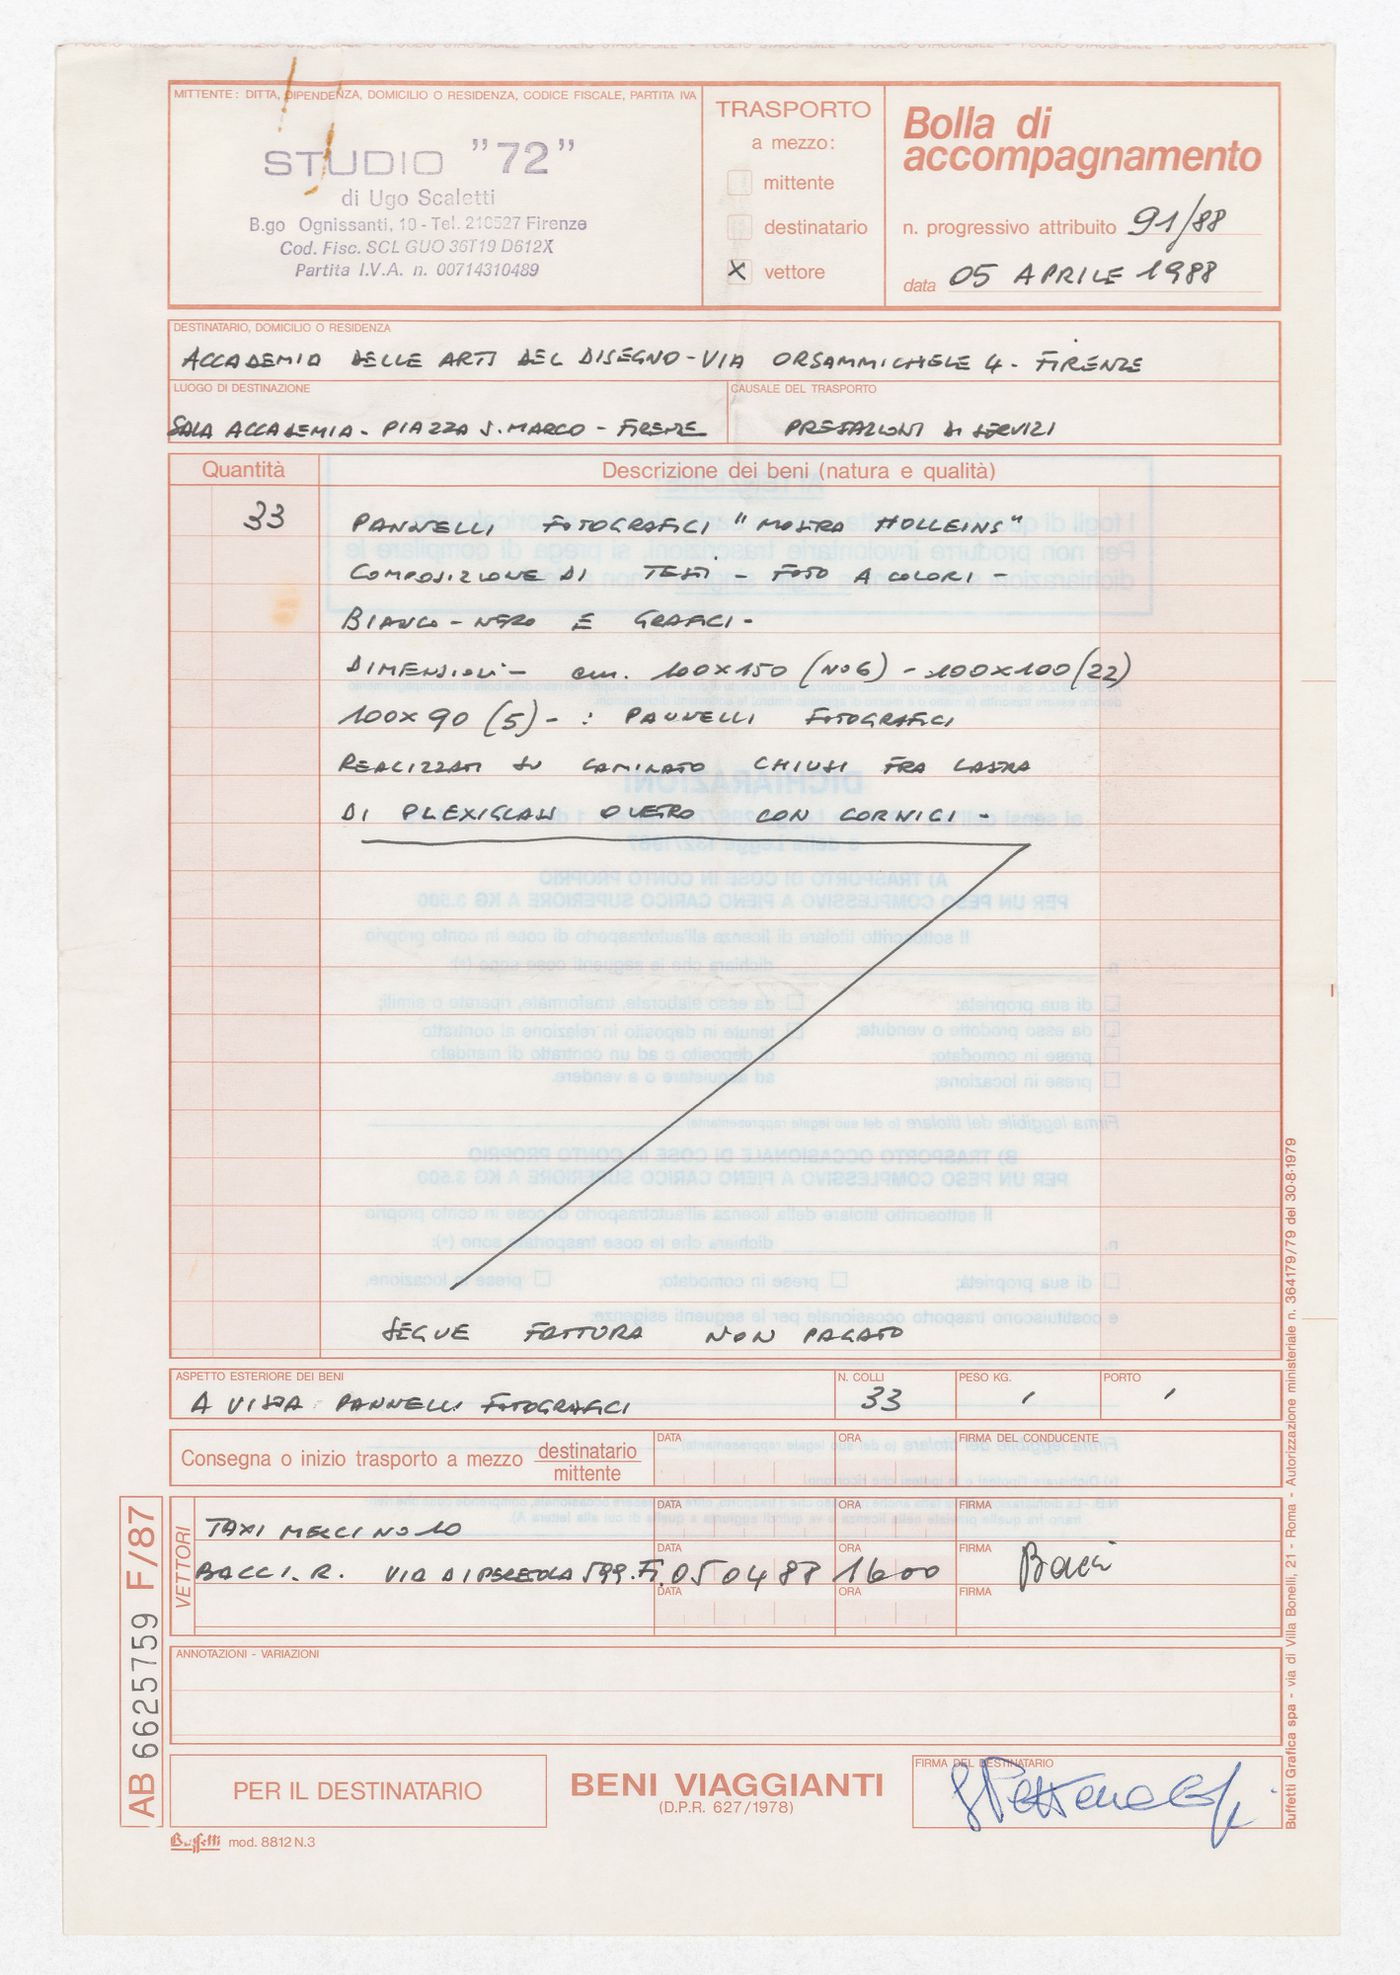 MITTENTE: DITTA, DIPENDENZA, DOMICILIO O RESIDENZA, CODICE FISCALE, PARTITA IVA
STUDIO "72"
di Ugo Scaletti
B.go Ognissanti, 10 - Tel. 210527 Firenze
Cod. Fisc. SCL GUO 36T19 D612X
Partita I.V.A. n. 00714310489
TRASPORTO
a mezzo:
mittente
destinatario
X vettore
Bolla di
accompagnamento
n. progressivo attribuito 91/88
data 05 APRILE 1988
DESTINATARIO, DOMICILIO O RESIDENZA
ACCADEMIA DELLE ARTI DEL DISEGNO - VIA ORSAMMICHELE 4 - FIRENZE
LUOGO DI DESTINAZIONE
SALA ACCADEMIA - PIAZZA S. MARCO - FIRENZE
CAUSALE DEL TRASPORTO
PRESTAZIONI DI SERVIZI
Quantità
Descrizione dei beni (natura e qualità)
33 PANNELLI FOTOGRAFICI "MOSTRA HOLLEINS"
COMPOSIZIONE DI TESTI - FOTO A COLORI -
BIANCO - NERO E GRAFICI -
DIMENSIONI - cm. 100x150 (No 6) - 100x100 (22)
100x90 (5) - : PANNELLI FOTOGRAFICI
REALIZZATI SU LAMINATO CHIUSI FRA LASTRA
DI PLEXIGLASS O VETRO CON CORNICI -
SEGUE FATTURA NON PAGATO
ASPETTO ESTERIORE DEI BENI
A VISTA PANNELLI FOTOGRAFICI
N. COLLI
33
PESO KG.
/
PORTO
/
Consegna o inizio trasporto a mezzo destinatario
mittente
DATA
ORA
FIRMA DEL CONDUCENTE
VETTORI
TAXI MERCI No 10
DATA
ORA
FIRMA
BACCI. R. VIA DI PERETOLA 599. FI.
DATA
050488
ORA
1600
FIRMA
Bacci
DATA
ORA
FIRMA
ANNOTAZIONI - VARIAZIONI
PER IL DESTINATARIO
BENI VIAGGIANTI
(D.P.R. 627/1978)
FIRMA DEL DESTINATARIO
Buffetti mod. 8812 N.3
AB 6625759 F/87
Buffetti Grafica spa - via di Villa Bonelli, 21 - Roma - Autorizzazione ministeriale n. 364179/79 del 30-8-1979